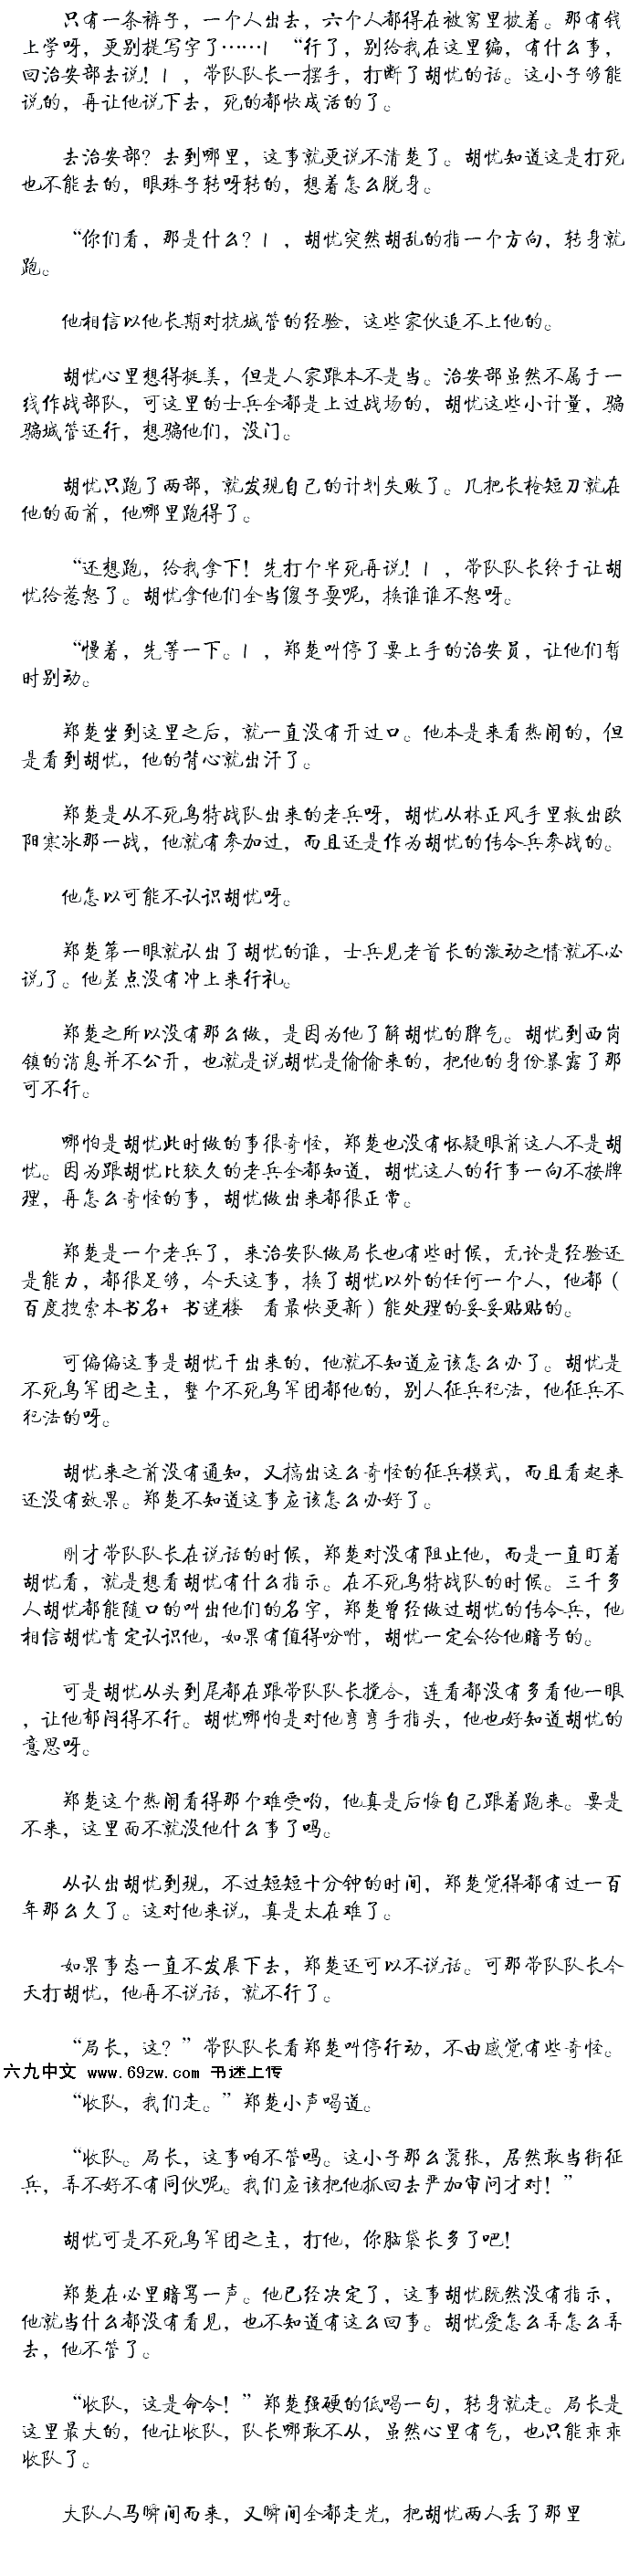 只有一条裤子，一个人出去，六个人都得在被窝里披着。那有钱
上学呀，更别提写字了……! “行了，别给我在这里编，有什么事，
回治安部去说！l ，带队队长一摆手，打断了胡忧的话。这小子够能
说的，再让他说下去，死的都快成活的了。
去治安部？去到哪里，这事就更说不清楚了。胡忧知道这是打死
也不能去的，眼珠子转呀转的，想着怎么脱身。
“你们看，那是什么？l ，胡忧突然胡乱的指一个方向，转身就
跑。
他相信以他长期对抗城管的经验，这些家伙追不上他的。
胡忧心里想得挺美，但是人家跟本不是当。治安部虽然不属于一
线作战部队，可这里的士兵全都是上过战场的，胡忧这些小计量，骗
骗城管还行，想骗他们，没门。
胡忧只跑了两部，就发现自己的计划失败了。几把长枪短刀就在
他的面前，他哪里跑得了。
“还想跑，给我拿下！先打个半死再说！l ，带队队长终于让胡
忧给惹怒了。胡忧拿他们全当傻子耍呢，换谁谁不怒呀。
“慢着，先等一下。l ，郑楚叫停了要上手的治安员，让他们暂
时别动。
郑楚坐到这里之后，就一直没有开过口。他本是来看热闹的，但
是看到胡忧，他的背心就出汗了。
郑楚是从不死鸟特战队出来的老兵呀，胡忧从林正风手里救出欧
阳寒冰那一战，他就有参加过，而且还是作为胡忧的传令兵参战的。
他怎以可能不认识胡忧呀。
郑楚第一眼就认出了胡忧的谁，士兵见老首长的激动之情就不必
说了。他差点没有冲上来行礼。
郑楚之所以没有那么做，是因为他了解胡忧的脾气。胡忧到西岗
镇的消息并不公开，也就是说胡忧是偷偷来的，把他的身份暴露了那
可不行。
哪怕是胡忧此时做的事很奇怪，郑楚也没有怀疑眼前这人不是胡
忧。因为跟胡忧比较久的老兵全都知道，胡忧这人的行事一向不按牌
理，再怎么奇怪的事，胡忧做出来都很正常。
郑楚是一个老兵了，来治安队做局长也有些时候，无论是经验还
是能力，都很足够，今天这事，换了胡忧以外的任何一个人，他都（
百度搜索本书名+ 书迷楼 看最快更新）能处理的妥妥贴贴的。
可偏偏这事是胡忧干出来的，他就不知道应该怎么办了。胡忧是
不死鸟军团之主，整个不死鸟军团都他的，别人征兵犯法，他征兵不
犯法的呀。
胡忧来之前没有通知，又搞出这么奇怪的征兵模式，而且看起来
还没有效果。郑楚不知道这事应该怎么办好了。
刚才带队队长在说话的时候，郑楚对没有阻止他，而是一直盯着
胡忧看，就是想看胡忧有什么指示。在不死鸟特战队的时候。三千多
人胡忧都能随口的叫出他们的名字，郑楚曾经做过胡忧的传令兵，他
相信胡忧肯定认识他，如果有值得吩咐，胡忧一定会给他暗号的。
可是胡忧从头到尾都在跟带队队长搅合，连看都没有多看他一眼
，让他郁闷得不行。胡忧哪怕是对他弯弯手指头，他也好知道胡忧的
意思呀。
郑楚这个热闹看得那个难受哟，他真是后悔自己跟着跑来。要是
不来，这里面不就没他什么事了吗。
从认出胡忧到现，不过短短十分钟的时间，郑楚觉得都有过一百
年那么久了。这对他来说，真是太在难了。
如果事态一直不发展下去，郑楚还可以不说话。可那带队队长今
天打胡忧，他再不说话，就不行了。
“局长，这？”带队队长看郑楚叫停行动，不由感觉有些奇怪。
六九中文 www.69zw.com 书迷上传
“收队，我们走。”郑楚小声喝道。
“收队。局长，这事咱不管吗。这小子那么嚣张，居然敢当街征
兵，弄不好不有同伙呢。我们应该把他抓回去严加审问才对！”
胡忧可是不死鸟军团之主，打他，你脑袋长多了吧！
郑楚在必里暗骂一声。他已经决定了，这事胡忧既然没有指示，
他就当什么都没有看见，也不知道有这么回事。胡忧爱怎么弄怎么弄
去，他不管了。
“收队，这是命令！”郑楚强硬的低喝一句，转身就走。局长是
这里最大的，他让收队，队长哪敢不从，虽然心里有气，也只能乖乖
收队了。
大队人马瞬间而来，又瞬间全都走光，把胡忧两人丢了那里